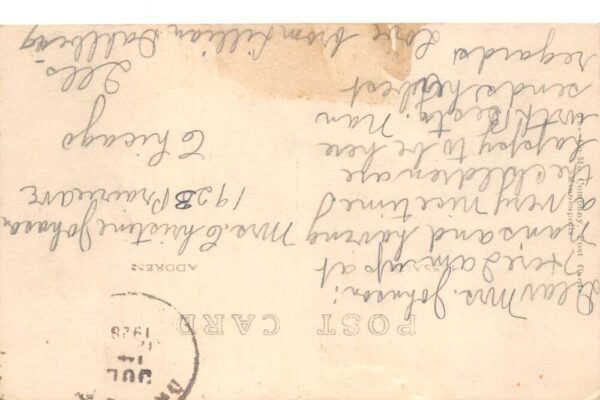 POST CARD
ADDRESS
Dear Mrs. Johnson:
Here I am up at
Nans and having
a very nice time
the children are
happy to be here
with Besta. Nan
sends her best
regards
Love from Lillian Dahlberg
Mrs. Christine Johnson
1923 Prairie ave
Chicago
Ills
JUL
14
1928